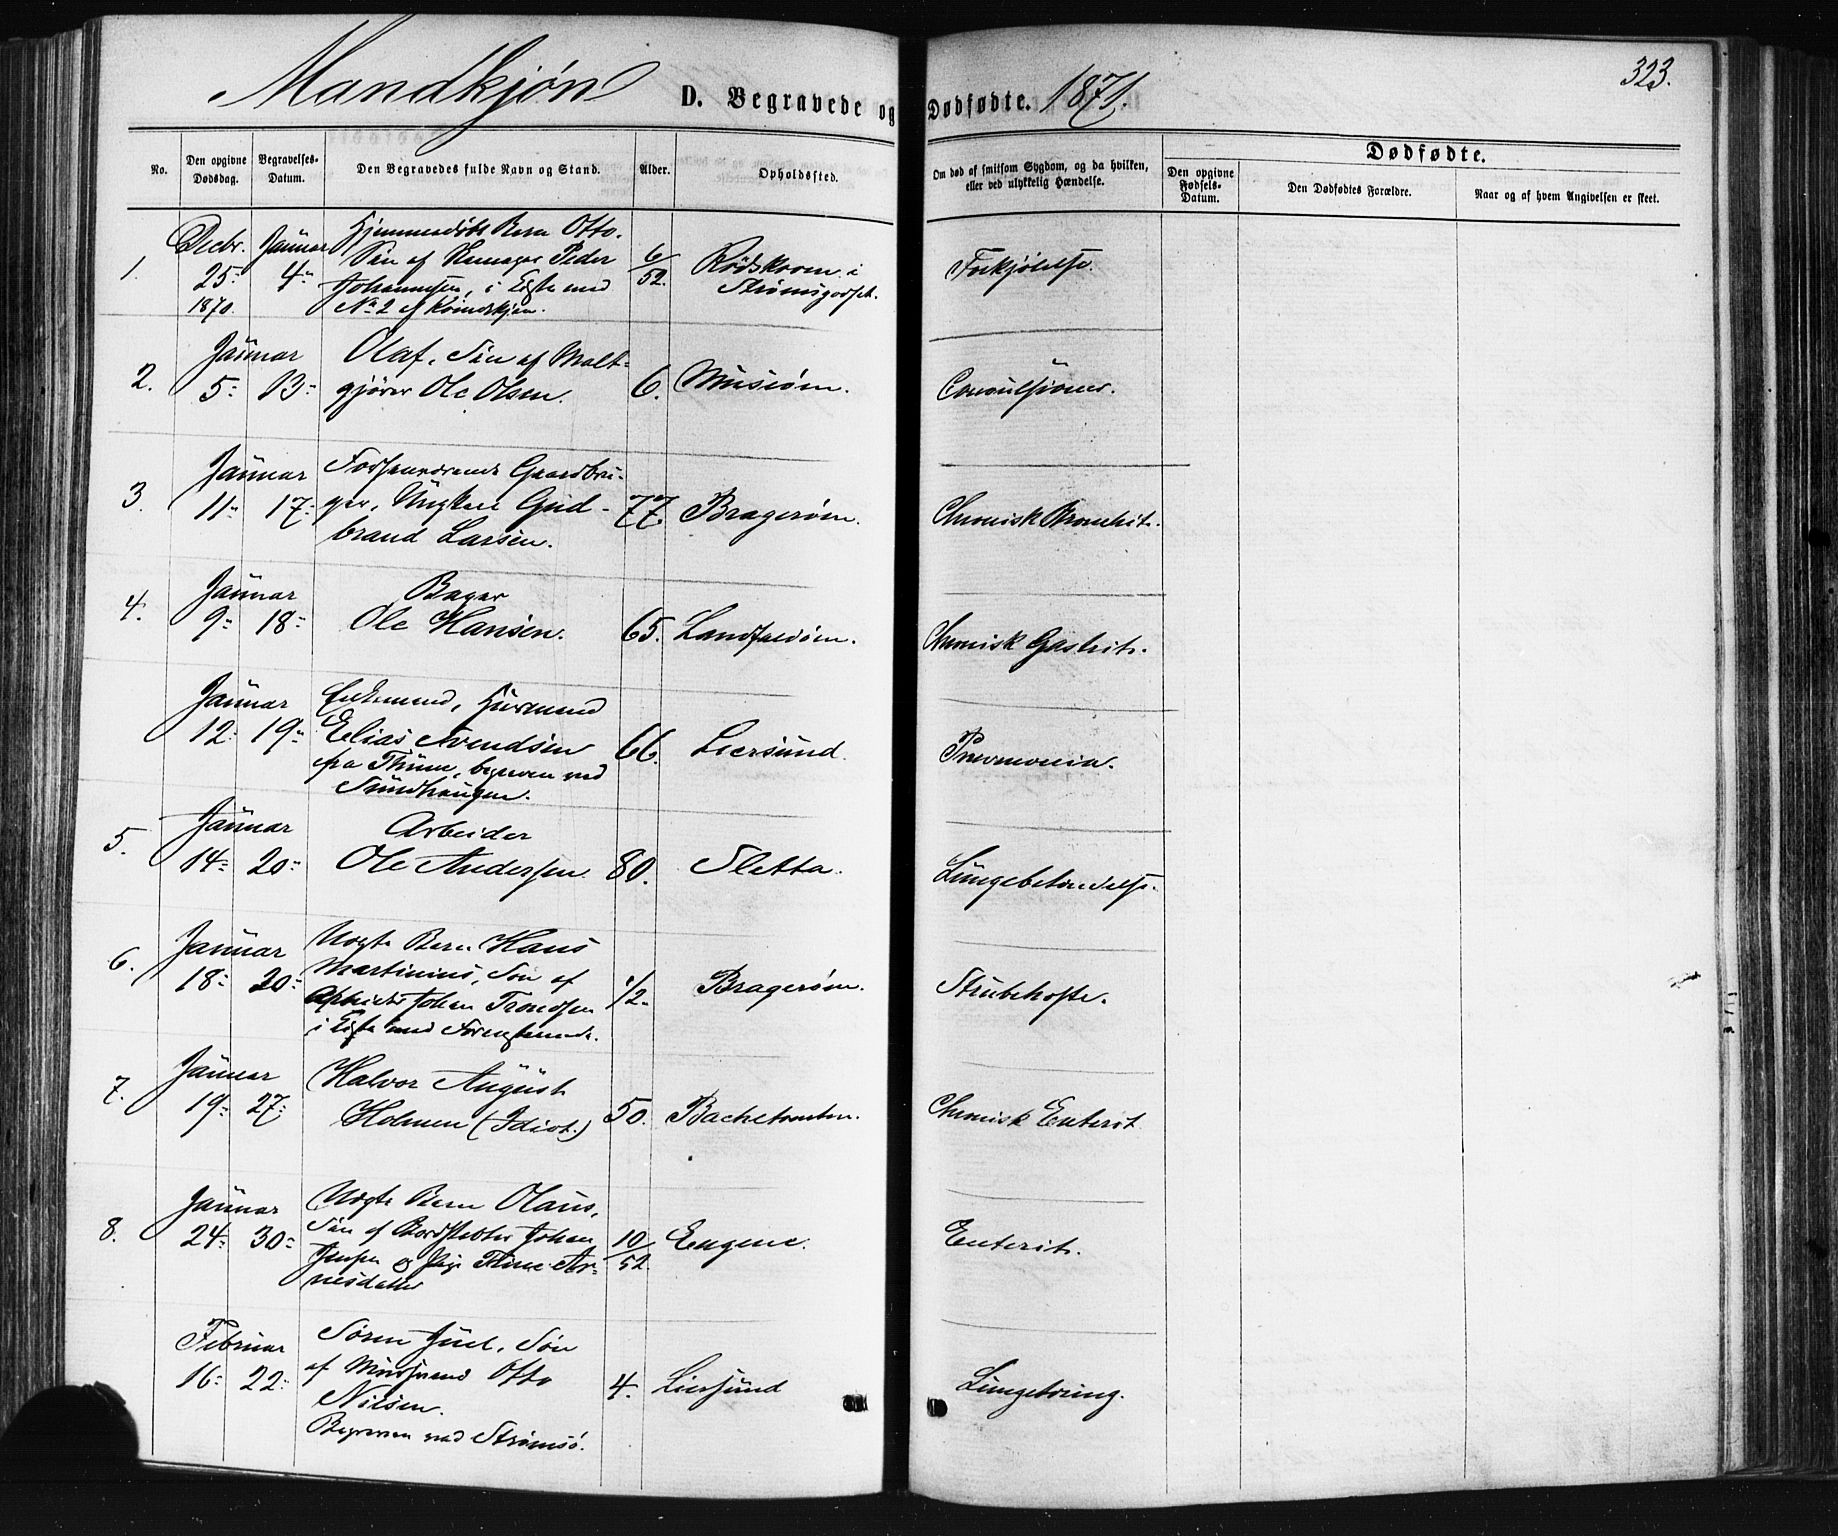 Mandkjøn D. Begravede og Dødfødte. 1871. 323.
No. Den opgivne Dødsdag. Begravelses-Datum. Den Begravedes fulde Navn og Stand. Alder. Opholdssted. Om død af smitsom Sygdom, og da hvilken, eller ved ulykkelig Hændelse. Dødfødte.
Den opgivne Fødsels-Datum. Den Dødfødtes Forældre. Naar og af hvem Angivelsen er skeet.
1. Decbr. 25- 1870. Januar 4-
Hjemmedøbt Barn Otto.
Søn af Peder
Johannesen, i Egte med
No 2 af Kvindekjøn.
6/52. i Strømsgodset. Forkjølelse.
2. Januar 5- 13-
Olaf, Søn af Malt-
gjører Ole Olsen.
6. Convulsioner.
3. Januar 11- 17-
Forhenværende Gaardbru-
ger, Ungkarl Gud-
brand Larsen.
77. Bragerøen. Chronisk Bronchit.
4. Januar 9- 18-
Bager
Ole Hansen.
65. Landfaldøen. Chronisk Gastrit.
Januar 12- 19-
Enkemand, Huusmand
Elias Svendsen
fra Thune, begraven ved
Sundhaugen.
66. Liersund. Pnevmonia.
5. Januar 14- 20-
Arbeider
Ole Andersen.
80. Sletta. Lungebetændelse.
6. Januar 18- 20-
Uægte Barn Hans
Martinius, Søn af
Arbeider Johan Trondsen
i Egte med
1/2. Bragerøen. Strubehoste.
7. Januar 19- 27-
Halvor August
Holmen (Idiot.)
50. Chronisk Enterit
8. Januar 24- 30-
Uægte Barn Olaus,
Søn af Johan
Jensen og Pige Thine Ar-
nesdatter
10/52. Engene. Enterit.
Februar 16- 22-
Søren Juel, Søn
af Otto
Nielsen.
Begraven ved Strømsø.
4. Liersund